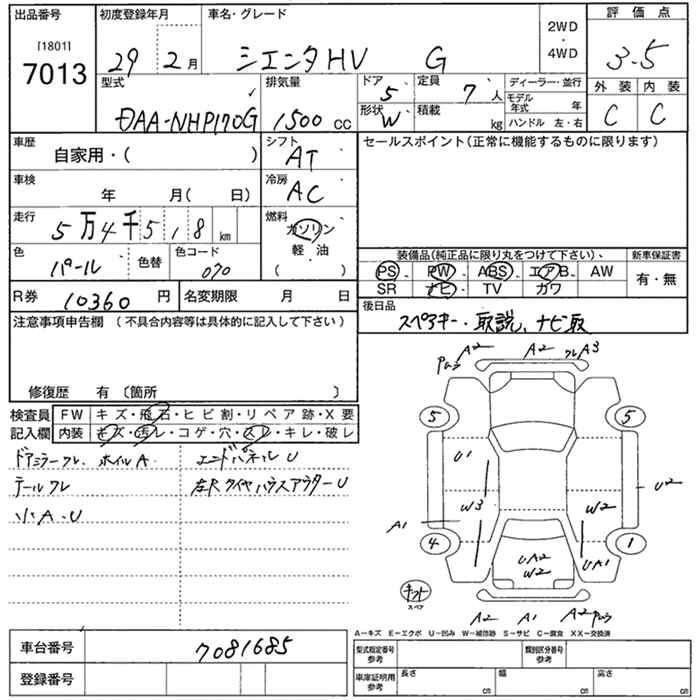 出品番号 初度登録年月 車名・グレード 2WD・4WD 評価点
[1801] 7013 29 2月 シエンタHV G 3.5
型式 排気量 ドア 5 定員 7人 ディーラー・並行 外装 内装
DAA-NHP170G 1500 cc 形状 W 積載 kg モデル年式 年 C C
ハンドル 左・右
車歴 シフト セールスポイント(正常に機能するものに限ります)
自家用・( ) AT
車検 冷房
年 月( 日) AC
走行 燃料
5万4千518km ガソリン
軽・油
色 色替 色コード ( ) 装備品(純正品に限り丸をつけて下さい)、 新車保証書
パール 070 PS PW ABS エアB AW 有・無
R券 10360円 名変期限 月 日 SR ナビ TV カワ
注意事項申告欄 (不具合内容等は具体的に記入して下さい) 後日品
スペアキー・取説、ナビ取
修復歴 有 〔箇所 〕
検査員 FW キズ・飛石・ヒビ割・リペア跡・X要
記入欄 内装 キズ・汚レ・コゲ・穴・スレ・キレ・破レ
ドアミラーフレ ホイルA エンドパネルU
テールフレ 左RタイヤハウスアウターU
小A、U
A2 A2 フレA3
5 5
U1
W3 W2 U2
A1
4 UA2 UA1 1
W2
キット
スペア
A2 A1 A2
A-キズ E-エクボ U-凹み W-補修跡 S-サビ C-腐食 XX-交換済
車台番号 7081685 型式指定番号 参考 類別区分番号 参考
登録番号 車庫証明用 参考 長さ cm 幅 cm 高さ cm